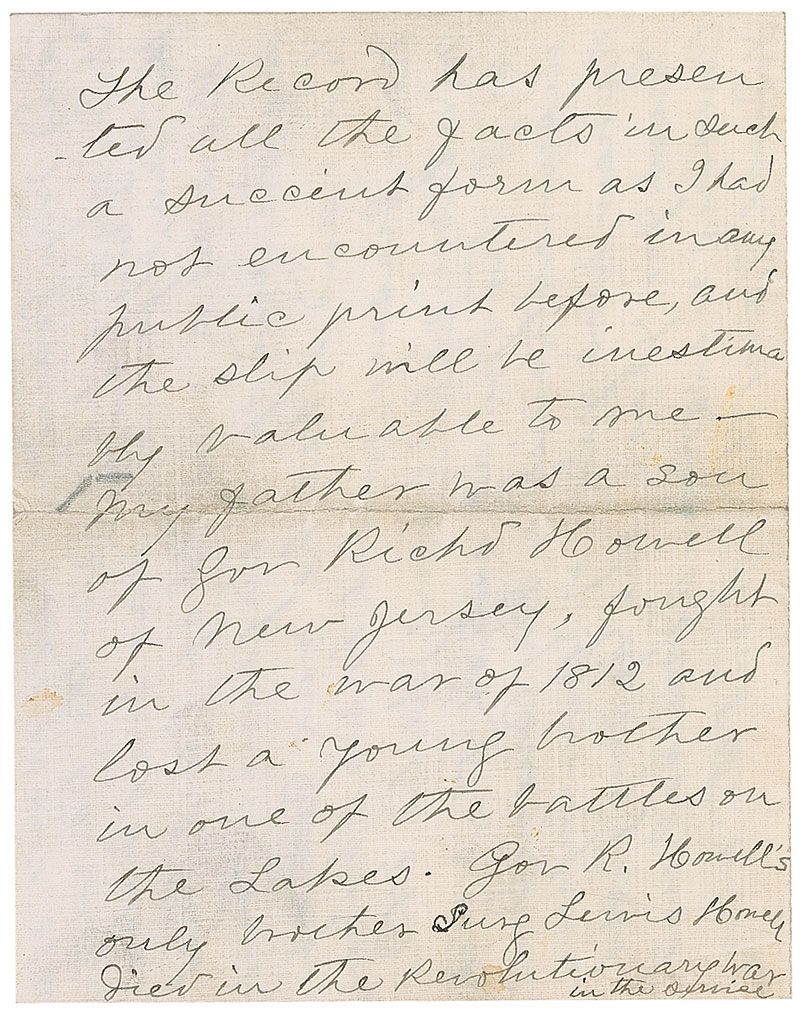 The Record has presen
-ted all the facts in such
a succint form as I had
not encountered in any
public print before, and
the slip will be inestima
bly valuable to me —
My father was a son
of Gov Richd Howell
of New Jersey, fought
in the war of 1812 and
lost a young brother
in one of the battles on
the Lakes. Gov R. Howell's
only brother Surg Lewis Howell
died in the Revolutionary war
in the service